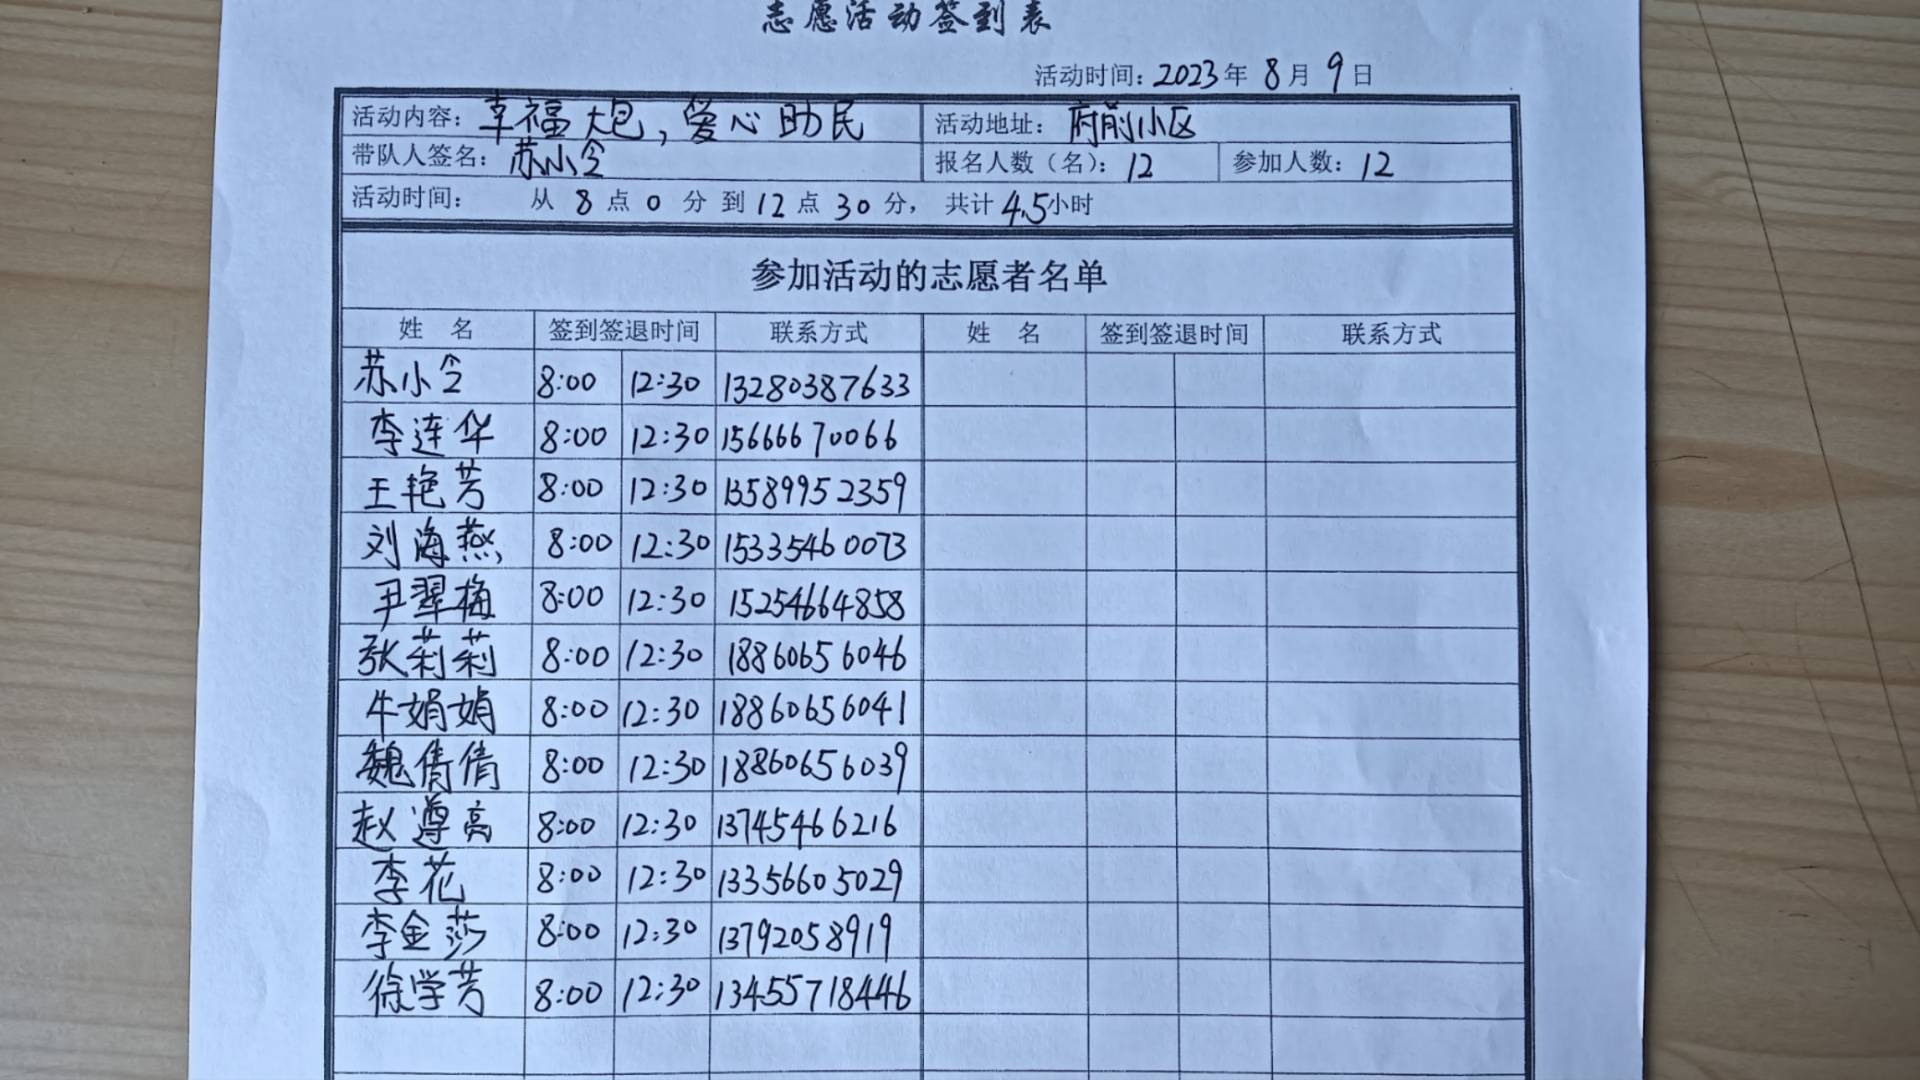 志愿活动签到表
活动时间：2023年 8月 9日
活动内容：幸福大包，爱心助民 活动地址：府前小区
带队人签名：苏小令 报名人数（名）：12 参加人数：12
活动时间： 从 8 点 0 分 到 12 点 30 分， 共计 4.5小时
参加活动的志愿者名单
姓 名 签到签退时间 联系方式 姓 名 签到签退时间 联系方式
苏小令 8:00 12:30 13280387633
李连华 8:00 12:30 15666670066
王艳芳 8:00 12:30 13589952359
刘海燕 8:00 12:30 15335460073
尹翠梅 8:00 12:30 15254664858
张莉莉 8:00 12:30 18860656046
牛娟娟 8:00 12:30 18860656041
魏倩倩 8:00 12:30 18860656039
赵遵高 8:00 12:30 13745466216
李花 8:00 12:30 13356605029
李金莎 8:00 12:30 13792058919
徐学芳 8:00 12:30 13455718446